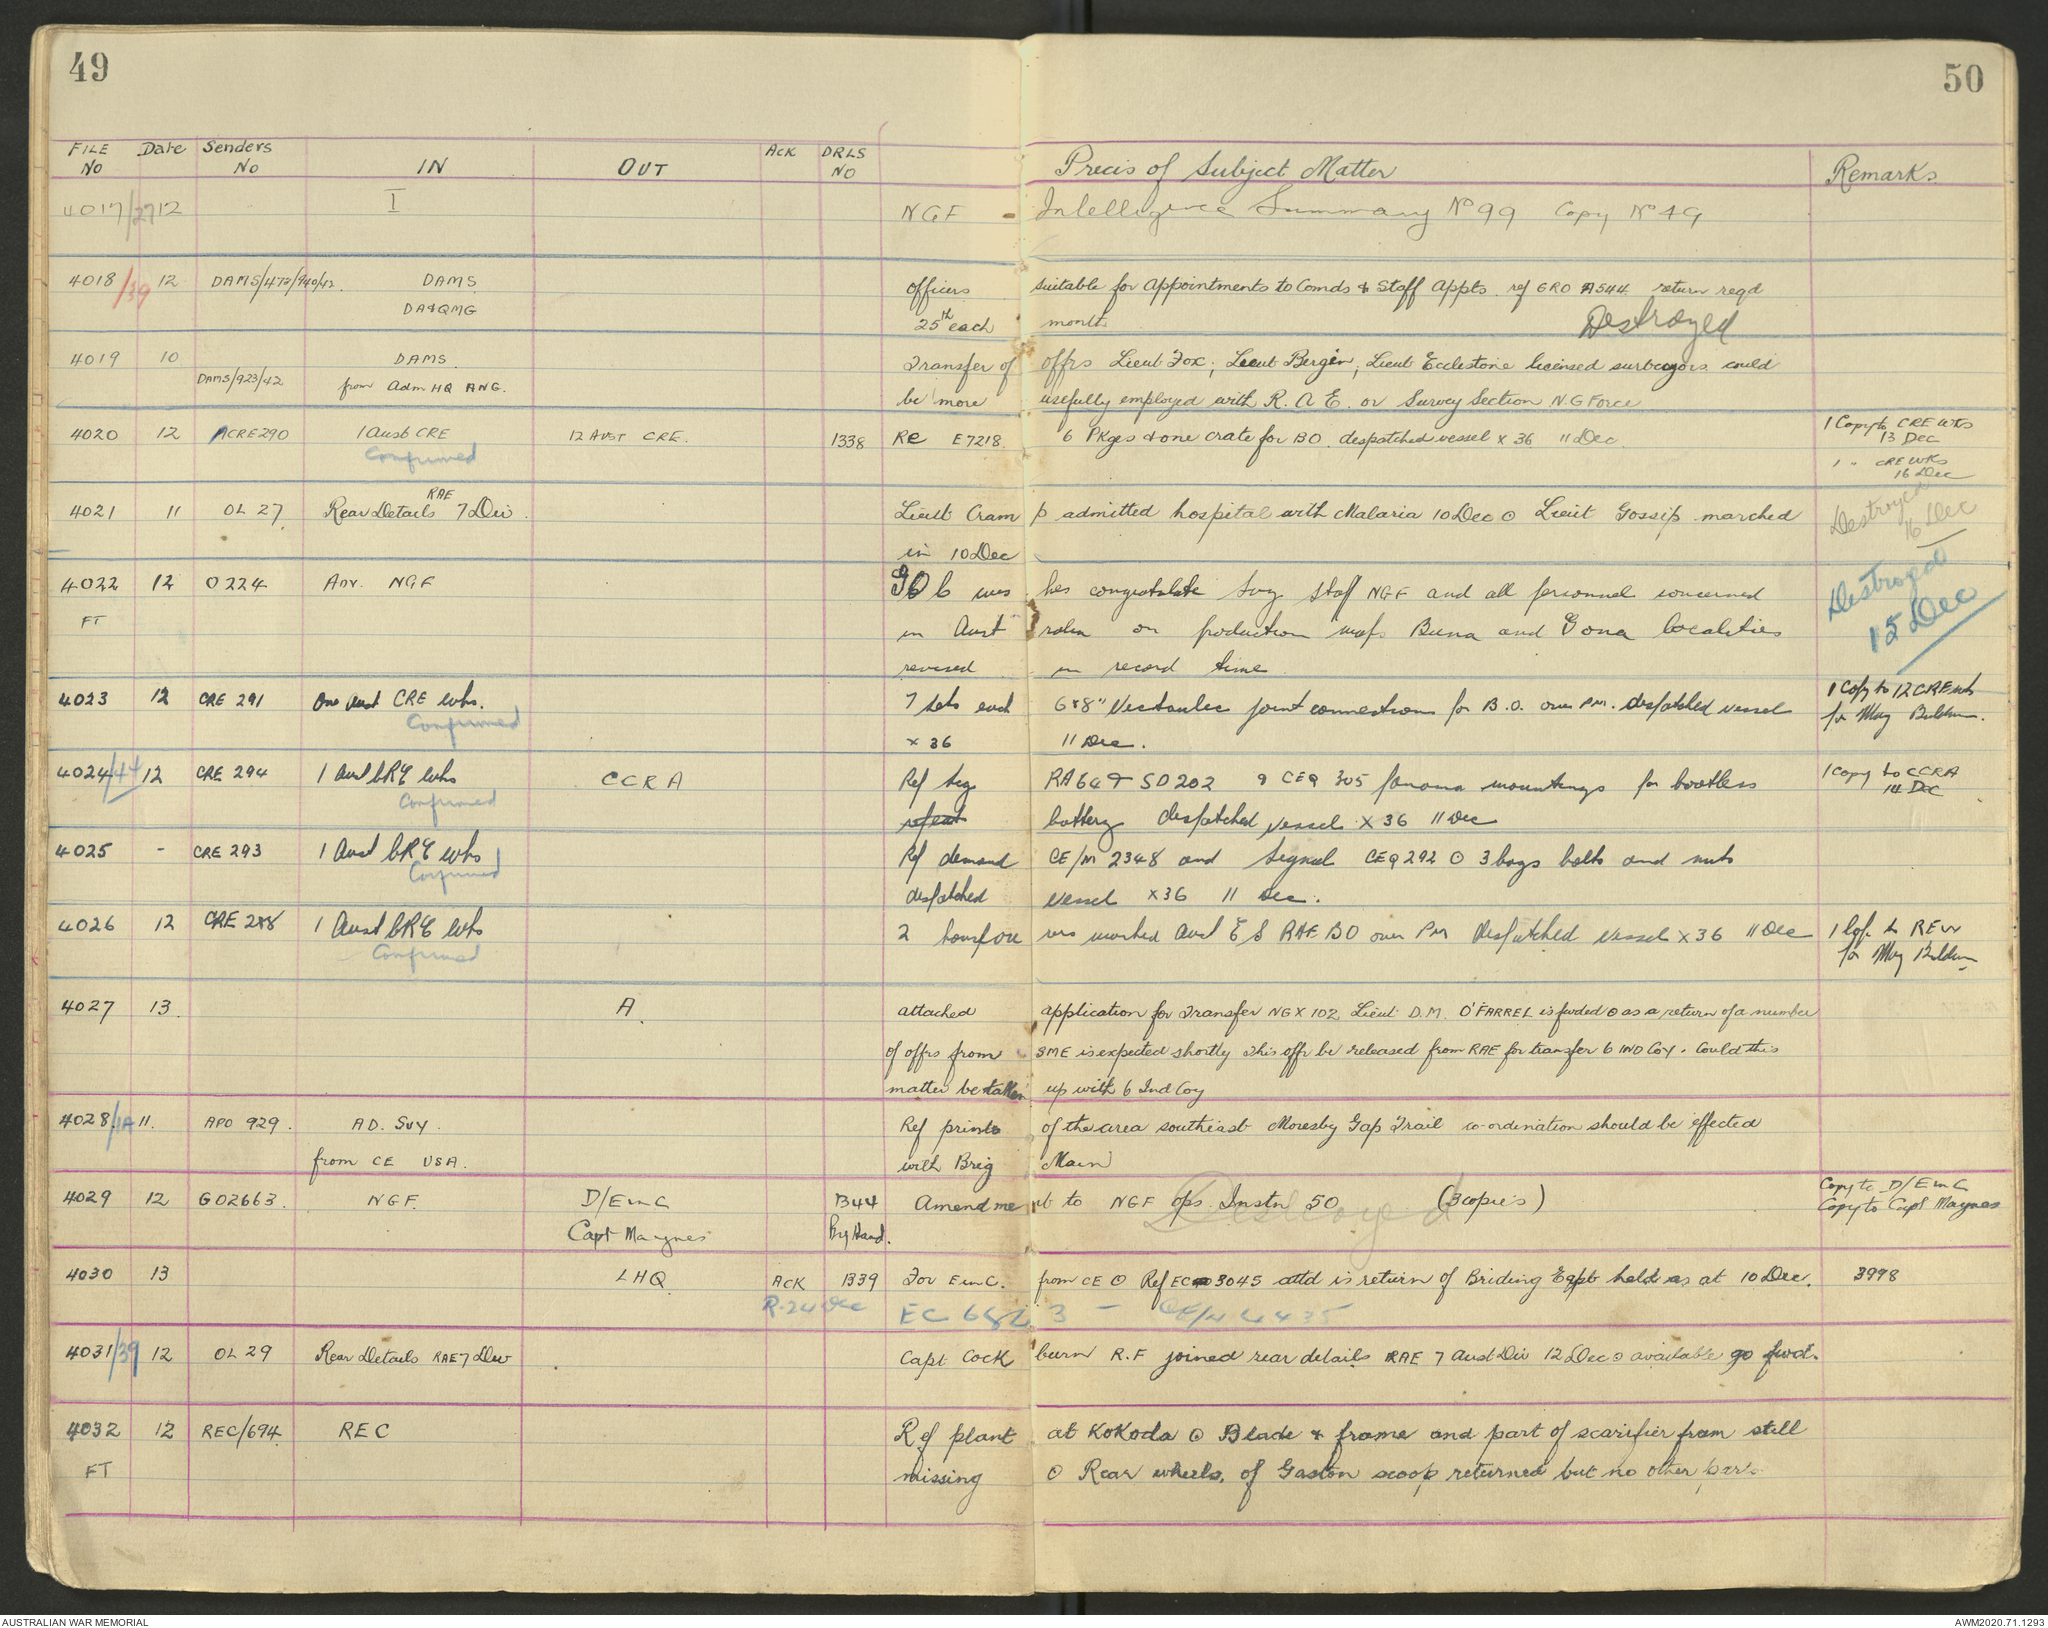 49
50
FILE No Date Senders No IN OUT Ack DRLS No Precis of Subject Matter Remarks
4017/27 12 I NGF - Intelligence Summary No 99 Copy No 49
4018/39 12 DAMS/473/940/42. DAMS officers suitable for appointments to Comds & Staff Appts. ref GRO A544. return reqd
DA&QMG 25th each month Destroyed
4019 10 DAMS. Transfer of offrs Lieut Fox; Lieut Bergin; Lieut Ecclestone licensed surveyors could
DAMS/923/42 from Adm HQ ANG. be more usefully employed with R.A.E. or Survey Section N.G Force
4020 12 ACRE290 1 Aust CRE 12 AUST CRE. 1338 Re E7218. 6 Pkges & one crate for BO. despatched vessel x 36 11 Dec. 1 Copy to CRE Wks
Confirmed 13 Dec
1 " CRE WKs
16 Dec
4021 11 OL 27. Rear Details RAE 7 Div. Lieut Cramp admitted hospital with Malaria 10 Dec ⊙ Lieut Gossip marched Destroyed
in 10 Dec 16 Dec
4022 12 O224 Adv. NGF GOC wishes congratulate Svy Staff NGF and all personnel concerned Destroyed
FT in Australia on production maps Buna and Gona localities 15 Dec
revised in record time.
4023 12 CRE 291 One Aust CRE Wks. 7 sets each 6"x8" Victaulic joint connections for B.O. over PM. despatched vessel 1 Copy to 12 CRE Wks
Confirmed x 36 11 Dec. for Maj Baldwin.
4024/44 12 CRE 294 1 Aust CRE Wks CCRA Ref Sig RA64 & SD202 & CEQ 305 panama mountings for bootless 1 Copy to CCRA
Confirmed battery despatched vessel x 36 11 Dec 14 Dec
4025 - CRE 293 1 Aust CRE Wks Ref demand CE/M 2348 and Signal CEQ292 ⊙ 3 bags bolts and nuts
Confirmed despatched vessel x36 11 Dec.
4026 12 CRE 288 1 Aust CRE Wks 2 marked Aust E S RAE BO over PM despatched vessel x 36 11 Dec 1 Cop. to REW
Confirmed for Maj Baldwin
4027 13. A. attached application for Transfer NGX 102 Lieut D.M. O'FARREL is fwded ⊙ as a return of a number
of offrs from SME is expected shortly this offr be released from RAE for transfer 6 IND Coy. Could this
matter be taken up with 6 Ind Coy
4028/1A 11. APO 929. AD. Svy. Ref prints of the area southeast Moresby Gap Trail co-ordination should be effected
from CE USA. with Brig Main
4029 12 GO2663. NGF. D/E in C 1344 Amendment to NGF ops. Instn 50 (3 copies) Copy to D/E in C
Capt Maynes By Hand. Destroyed Copy to Capt Maynes
4030 13 LHQ ACK 1339 For E in C. from CE ⊙ Ref EC 3045 attd is return of Briding Eqpt held as at 10 Dec. 3998
R.24 Dec EC 6823 -
4031/39 12 OL 29 Rear Details RAE 7 Div Capt Cockburn R.F joined rear details RAE 7 Aust Div 12 Dec ⊙ available go fwd.
4032 12 REC/694. REC Ref plant at Kokoda ⊙ Blade & frame and part of scarifier from still
FT missing ⊙ Rear wheels. of Gaston scoop returned but no other parts
AUSTRALIAN WAR MEMORIAL
AWM2020.71.1293